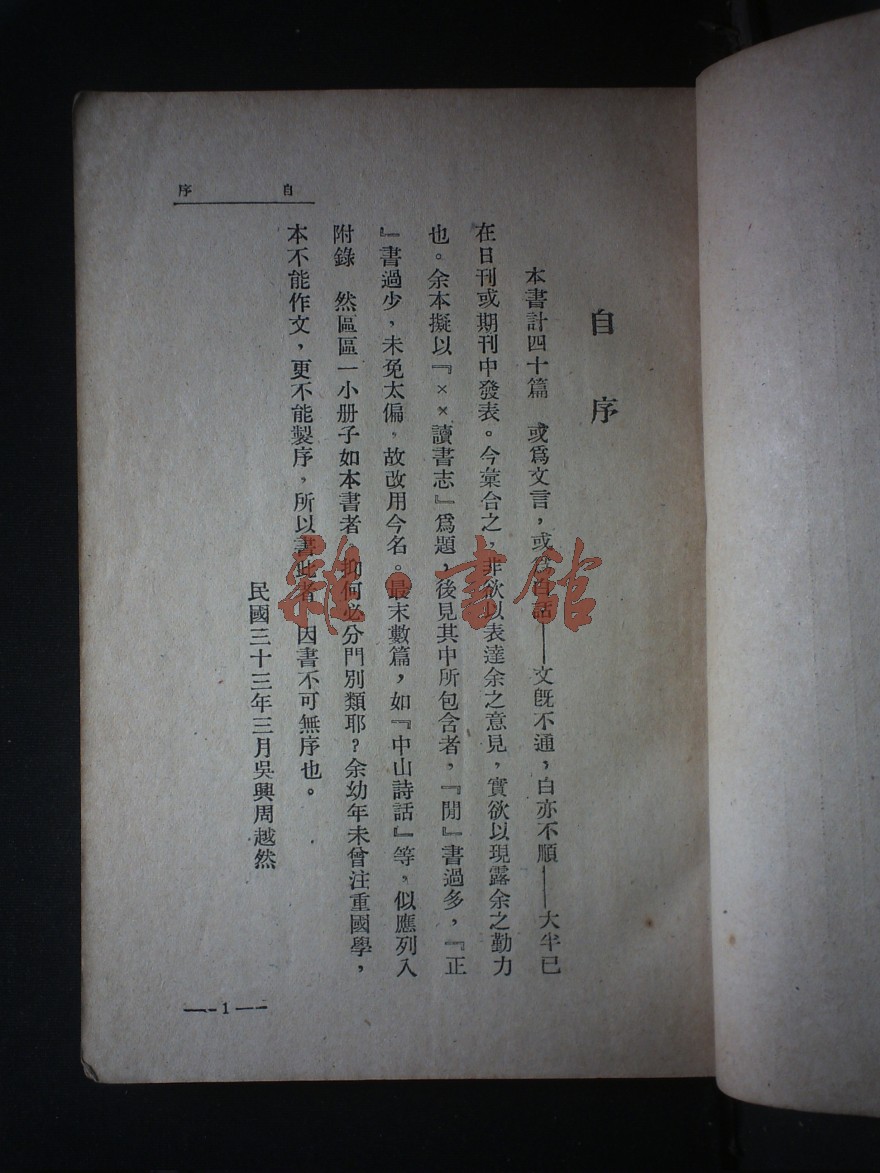 自序
自序
本書計四十篇　或爲文言，或爲白話——文旣不通，白亦不順——大半已
在日刊或期刊中發表。今彙合之，非欲以表達余之意見，實欲以現露余之勤力
也。余本擬以『××讀書志』爲題，後見其中所包含者，『閒』書過多，『正
』書過少，未免太偏，故改用今名。最末數篇，如『中山詩話』等，似應列入
附錄　然區區一小册子如本書者　抑何必分門別類耶？余幼年未曾注重國學，
本不能作文，更不能製序，所以書此者　因書不可無序也。
民國三十三年三月吳興周越然
——1——
雜·書館